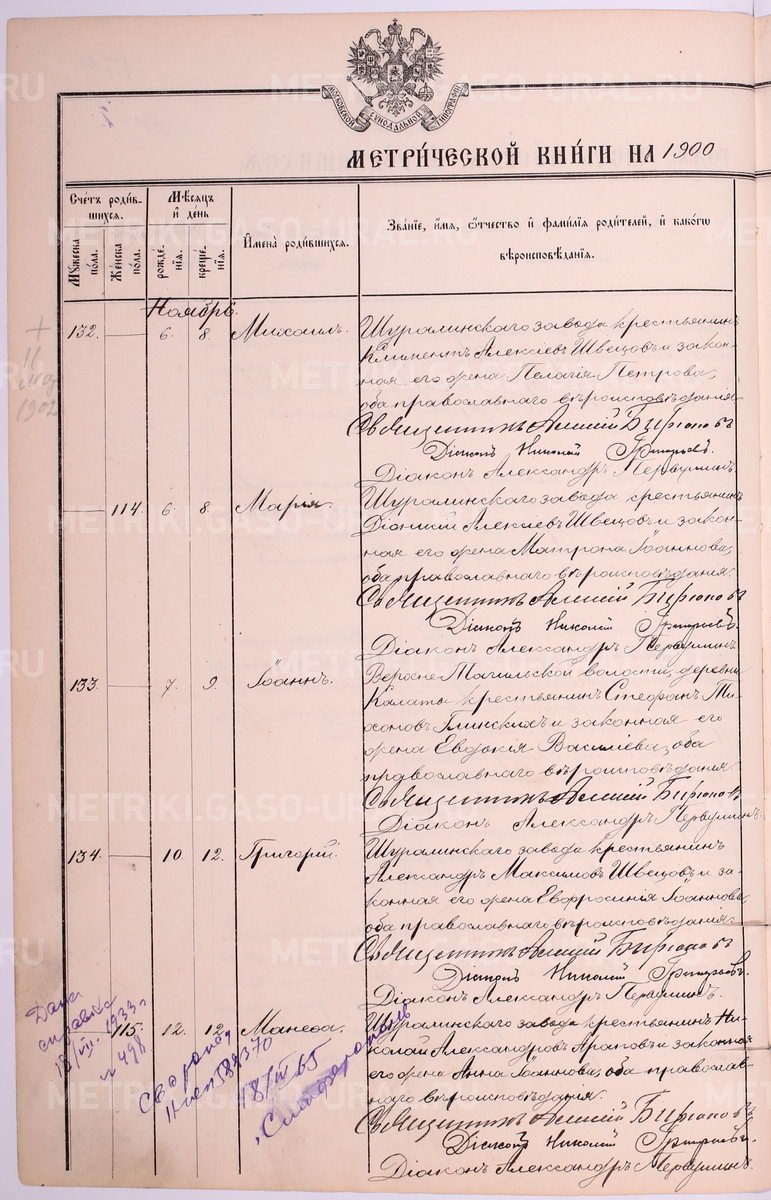 МОСКОВСКОЙ СѴНОДАЛЬНОЙ ТИПОГРАФІИ
МЕТРИ́ЧЕСКОЙ КНИ́ГИ НА 1900
Сче́тъ роди́вшихся.
Мѣ́сяцъ и де́нь
Имена̀ роди́вшихся.
Зва́ніе, и́мя, ѻ́тчество и фами́лія роди́телей, и како́гѡ вѣроисповѣ́данія.
Мꙋ́жеска по́ла.
Же́нска по́ла.
рожде́нія.
креще́нія.
Ноябрь.
132. 6. 8. Михаилъ. Шуралинскаго завода крестьянинъ
Климентъ Алексіевъ Швецовъ и закон-
ная его жена Пелагія Петрова,
оба православнаго вѣроисповѣданія.
Священникъ Алексій
Діаконъ Николай Григорьевъ.
Діаконъ Александръ Первушинъ
114. 6. 8. Марія. Шуралинскаго завода крестьянинъ
Діонисій Алексіевъ Швецовъ и закон-
ная его жена Матрона Іоаннова,
оба православнаго вѣроисповѣданія.
Священникъ Алексій
Діаконъ Николай Григорьевъ.
Діаконъ Александръ Первушинъ.
133. 7. 9. Іоаннъ. Верхне-Тагильской волости, деревни
Калаты крестьянинъ Стефанъ Ти-
хоновъ Глинскихъ и законная его
жена Евдокія Василіева, оба
православнаго вѣроисповѣданія
Священникъ Алексій
Діаконъ Александръ Первушинъ.
134. 10. 12. Григорій. Шуралинскаго завода крестьянинъ
Александръ Максимовъ Швецовъ и за-
конная его жена Евфросинія Іоаннова,
оба православнаго вѣроисповѣданія.
Священникъ Алексій
Діаконъ Николай Григорьевъ.
Діаконъ Александръ Первушинъ.
115. 12. 12. Манеѳа. Шуралинскаго завода крестьянинъ Ни-
колай Александровъ Араповъ и законная
его жена Анна Іоаннова, оба православ-
наго вѣроисповѣданія.
Священникъ Алексій
Діаконъ Николай Григорьевъ.
Діаконъ Александръ Первушинъ.
+
11
1902
Дана
справка
18/VIII. 1933 г
№ 498
589370
18/ 65
METRIKI.GASO-URAL.RU